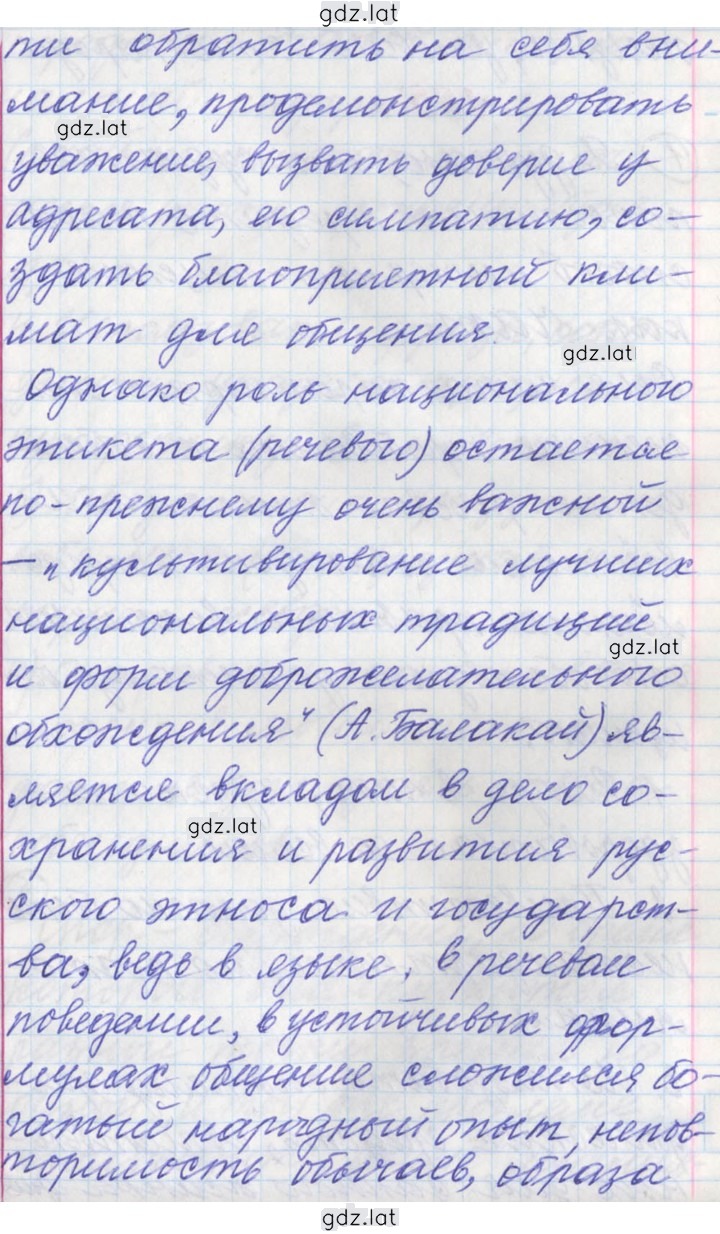 gdz.lat
ти обратить на себя вни-
мание, продемонстрировать
gdz.lat
уважение, вызвать доверие у
адресата, его симпатию, со-
здать благоприятный кли-
мат для общения.
gdz.lat
Однако роль национального
этикета (речевого) остается
по-прежнему очень важной
– „культивирование лучших
национальных традиций
gdz.lat
и форм доброжелательного
обхождения“ (А. Балакай) яв-
ляется вкладом в дело со-
gdz.lat
хранения и развития рус-
ского этноса и государст-
ва, ведь в языке, в речевом
поведении, в устойчивых фор-
мулах общение сложился бо-
гатый народный опыт, непов-
торимость обычаев, образа
gdz.lat